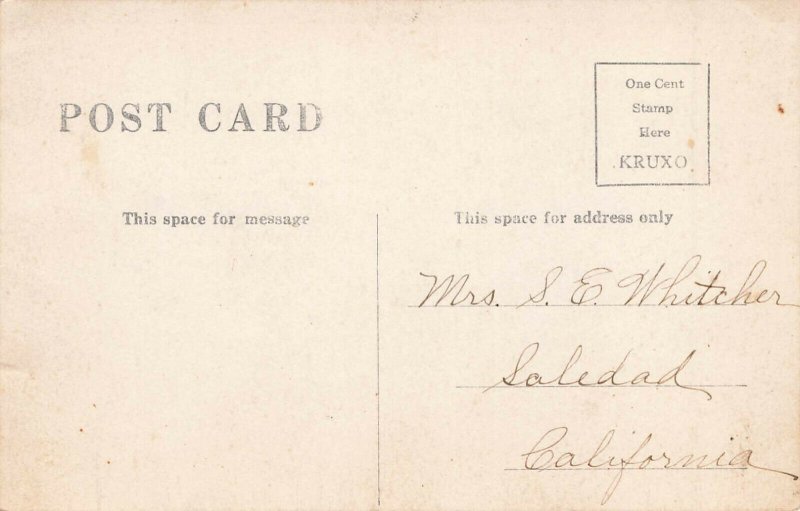 POST CARD
One Cent
Stamp
Here
KRUXO
This space for message
This space for address only
Mrs. S. E. Whitcher
Soledad
California